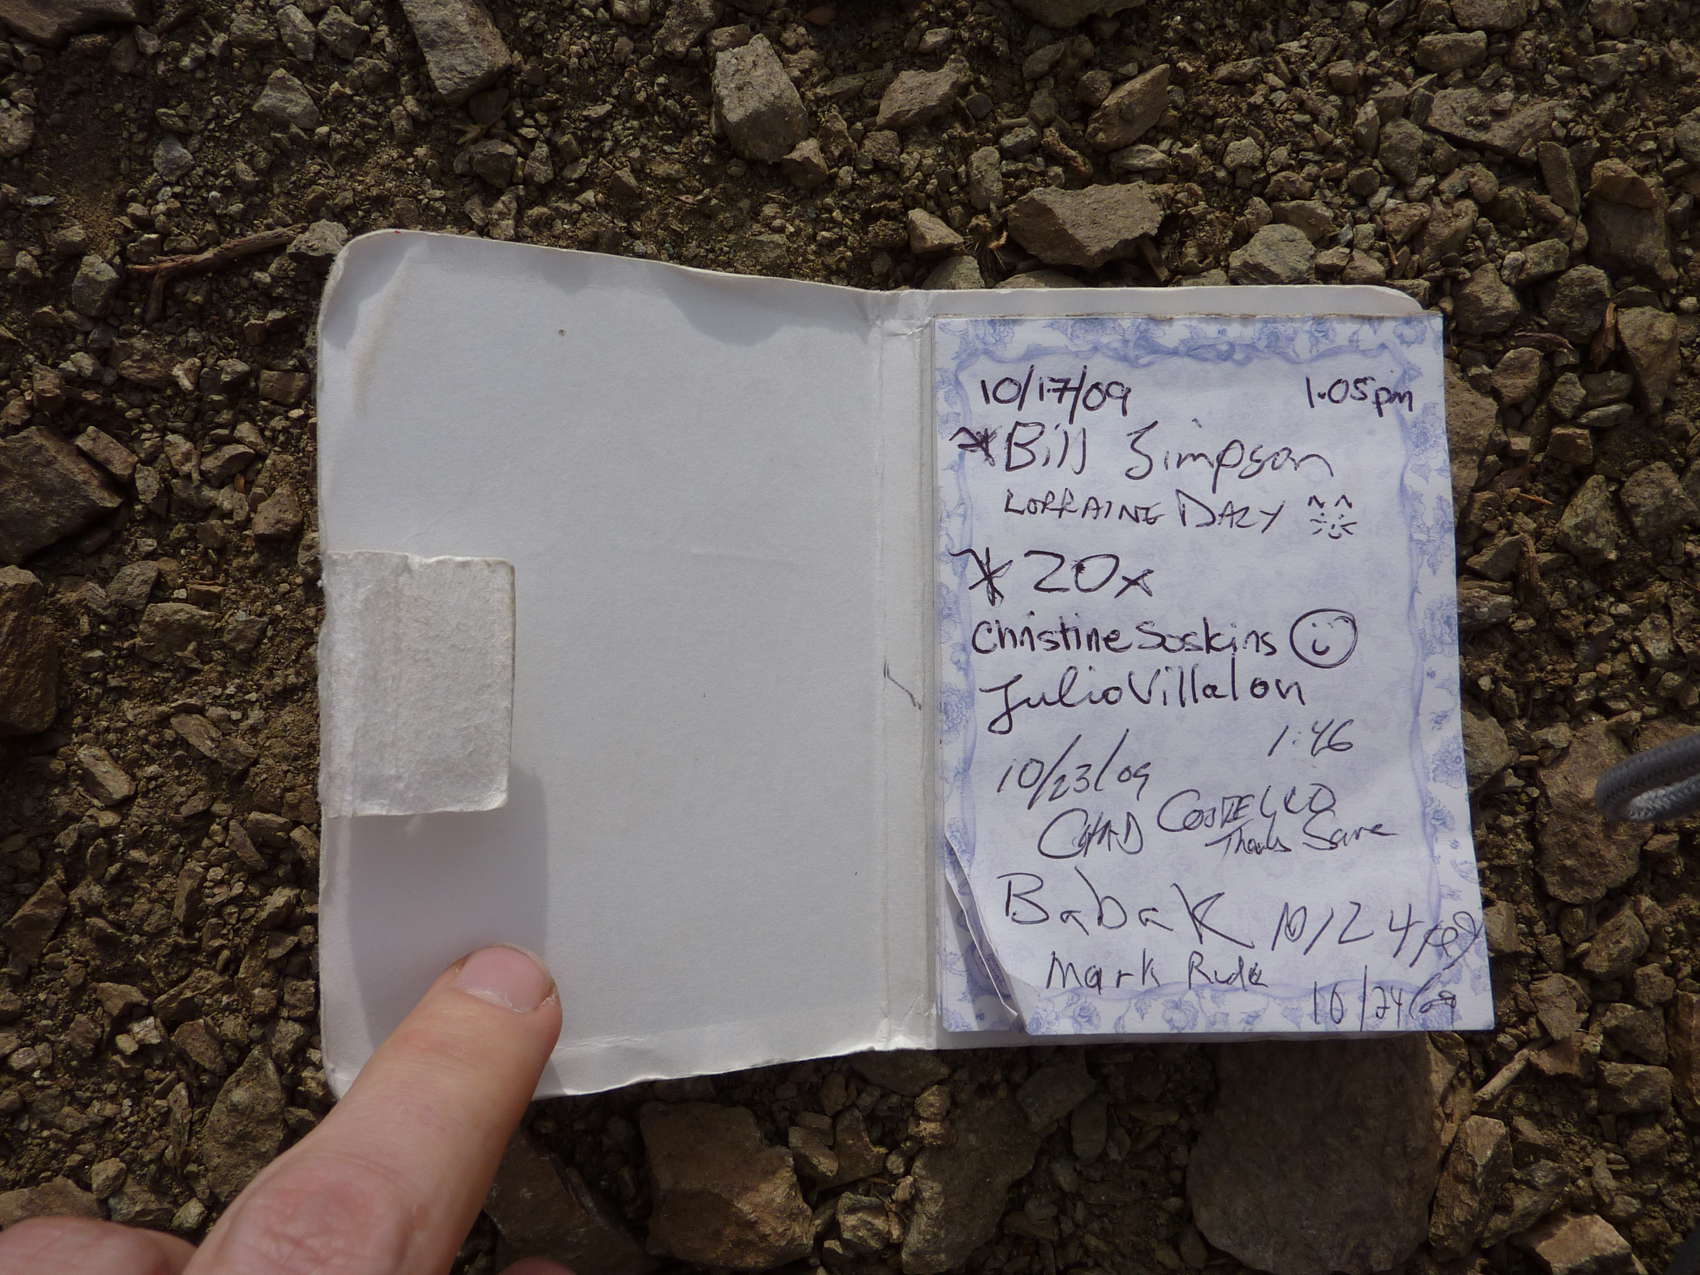 10/17/09 1:05pm
*Bill Simpson
LORRAINE DAZY
*20x
Christine Soskins
Julio Villalon
10/23/09 1:46
CHAD COSTELLO
Thanks Same
Babak 10/24/09
Mark Rude
10/24/09